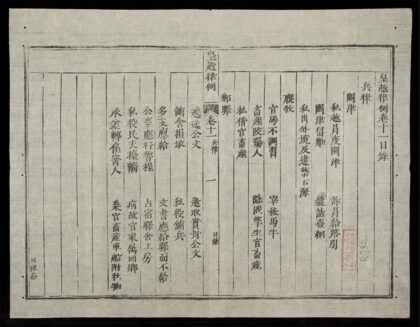 皇越律例卷十一目錄
兵律
關津
私越冒度關津　詐冒給路引
關津留難　盤詰姦細
私出外境及違禁下海
廄牧
官馬不調習　宰殺馬牛
畜產咬踢人　隱匿孳生官畜產
私借官畜產
郵驛
皇越律例　卷十一　兵律　一　目錄
遞送公文　邀取實封公文
鋪舍損壞　私役鋪兵
多支廩給　文書應給驛而不給
公事應行稽程　占宿驛舍上房
私役民夫擡轎　病故官家屬還鄉
承差轉雇寄人　乘官畜產車船附私物
目錄終